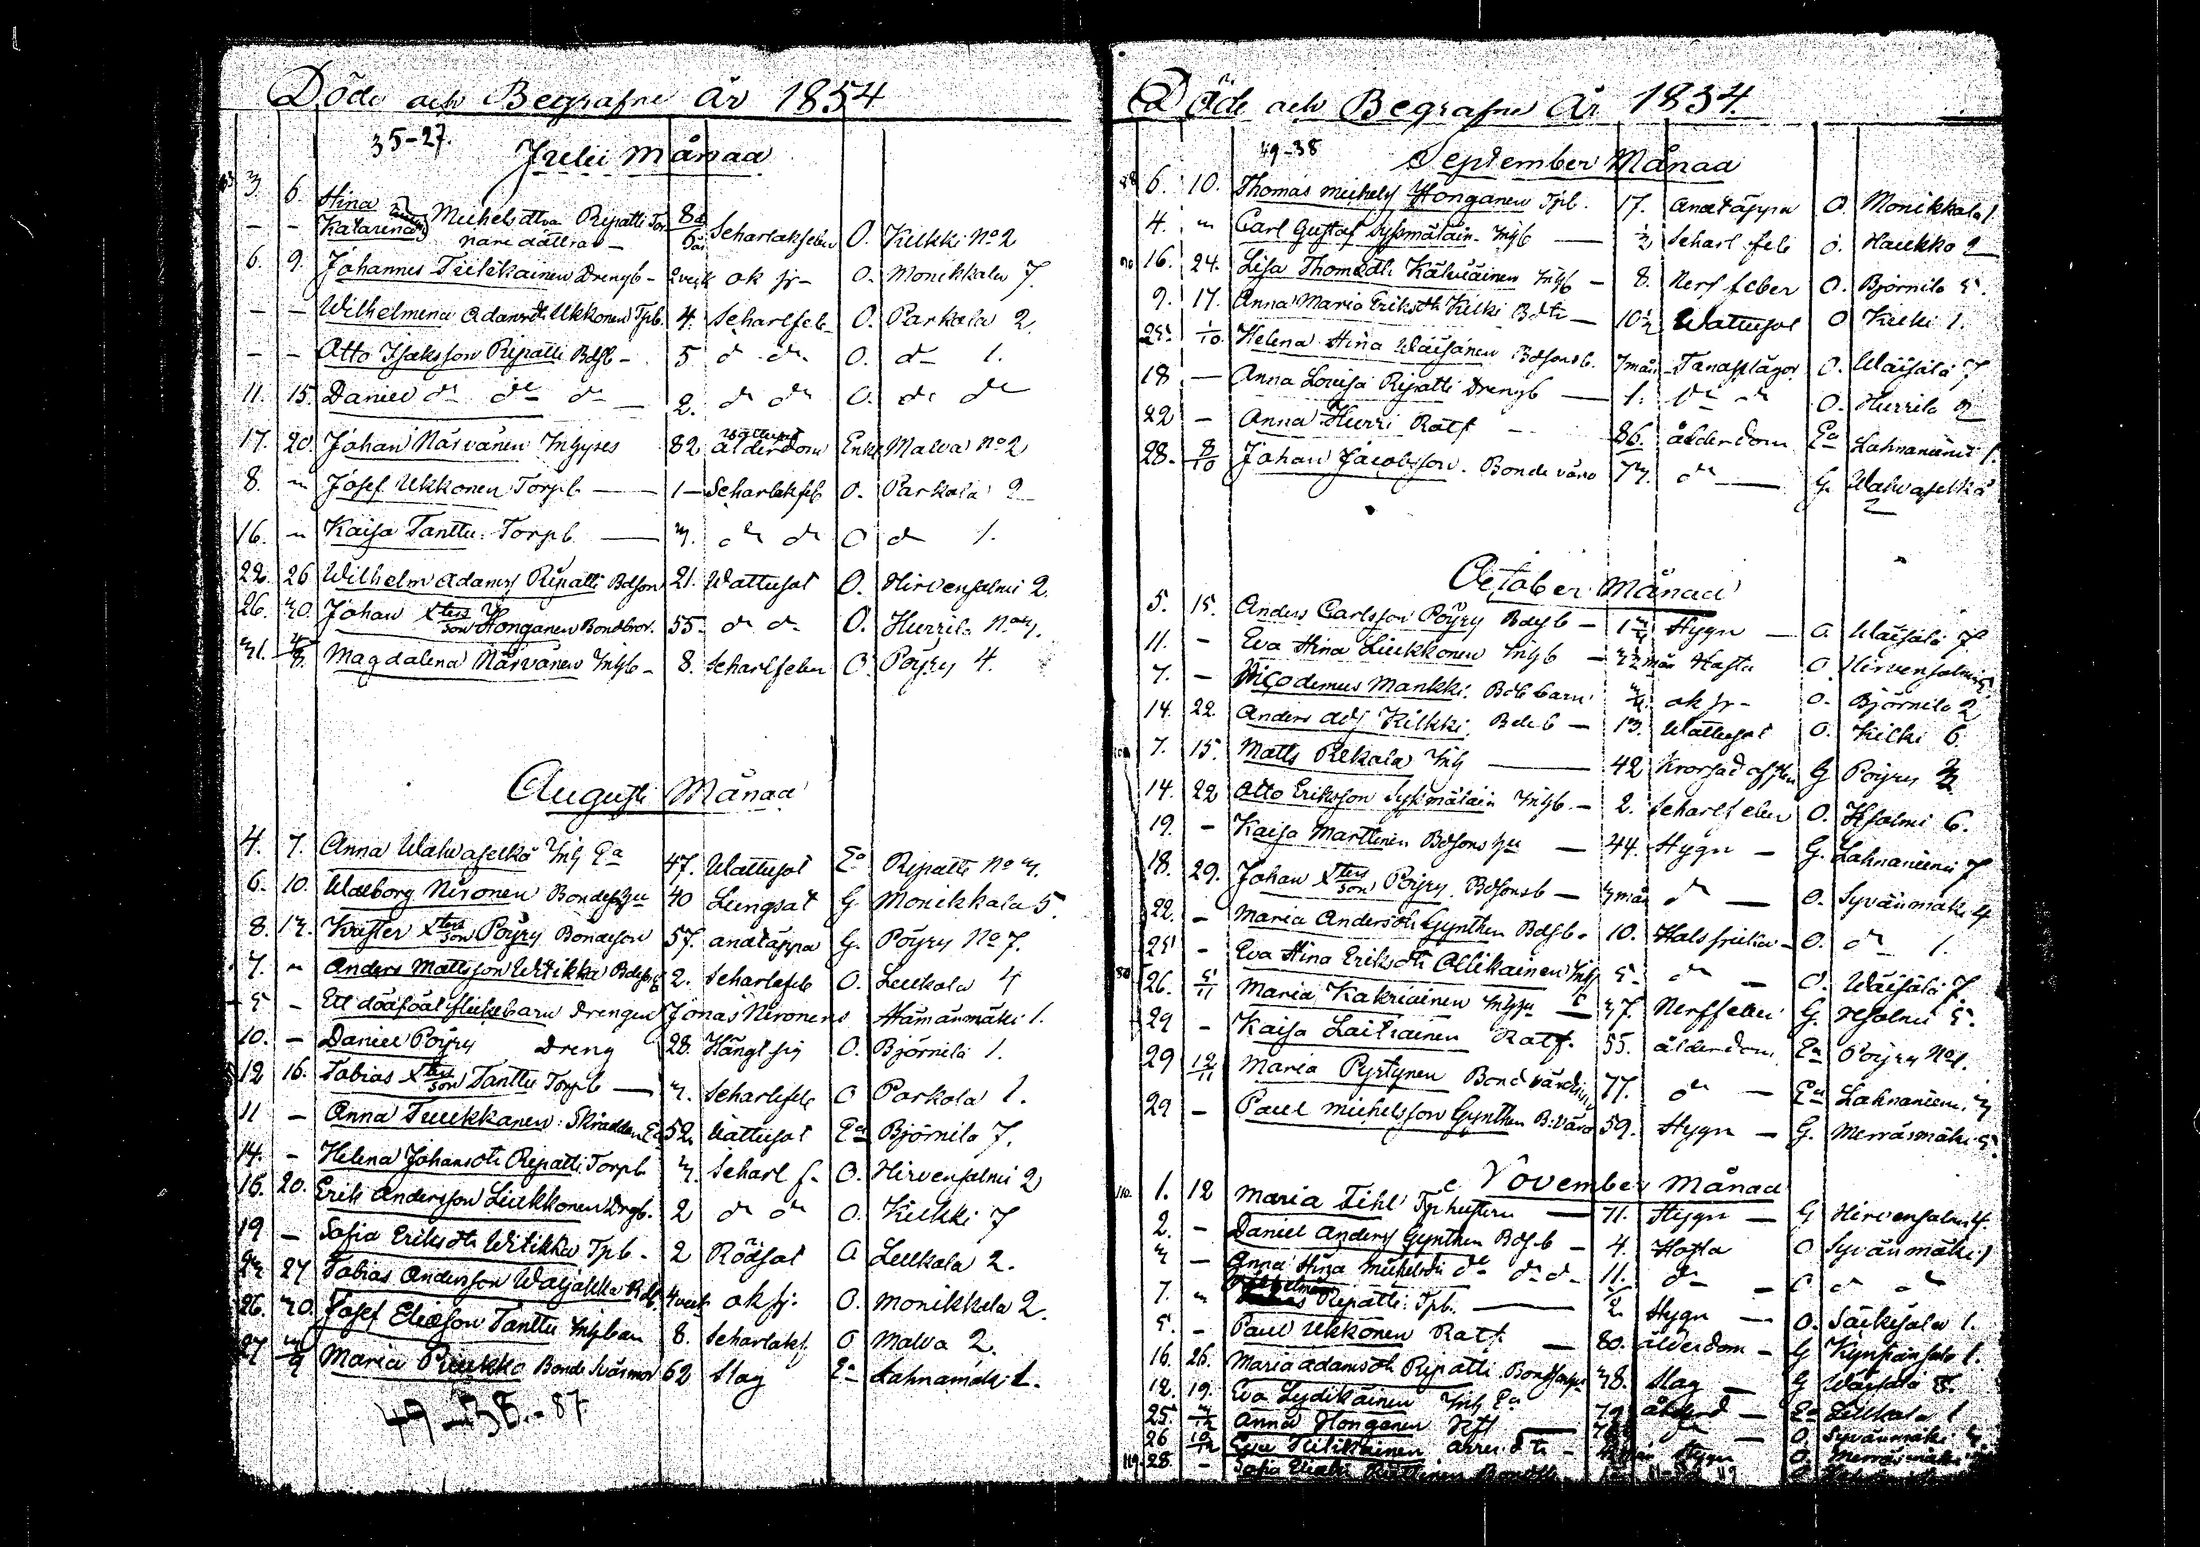 Döde och Begrafne År 1854
35-27.
Julii Månad
3. 6. Stina
- - Katarina Michelsdttra Ripatti Tor 8 Scharlakfeber O. Kilkki No 2
pare döttrar -
6. 9. Johannes Tiilikainen Drengb - 2 veck ok sj- O. Monikkala 7.
- - Wilhelmina Adamsdtr Ukkonen Tpb. 4. Scharlfeb- O. Parkala 2.
- - Otto Isaksson Ripatti Bdsb - 5 do do O. do 1.
11. 15. Daniel do do do - 2. do do O. do do
17. 20. Johan Närvänen Inhyses 82. Wattusot ålderdom Enkl Malva No 2
8. " Josef Ukkonen Torpb - 1 - Scharlakfeb O. Parkala 2
16. " Kaisa Tanttu Torpb - 3. do do O do 1.
22. 26 Wilhelm Adamss Ripatti Bdson 21. Wattusot O. Hirvensalmi 2.
26. 30. Johan Xters son Honganen Bondbror. 55. do do O. Hurrila No 3.
31. 4/8 Magdalena Närvänen Inhb - 8. Scharlfeber O. Pöyry 4.
Augusti Månad
4. 7. Anna Wahvaselkä Inh Ea 47. Wattusot Ea Ripatti No 3.
6. 10. Walborg Nironen Bondehu 40 Lungsot G. Monikkala 5.
8. 13. Krister Xters son Pöyry Bondeson 57. andtäppa G. Pöyry No 7.
7. " Anders Mattsson Witikka Bdesb 2. Scharlfeb O. Leukala 4
5 - Ett dödfödt flickebarn Drengen Jonas Nironens Hämänmäki 1.
10. - Daniel Pöyry Dreng 28. Hängt sig O. Björnilä 1.
12 16. Tobias Xters son Tanttu Torpb - 3. Scharlfeb O Parkola 1.
11 - Anna Tuukkanen Skräddar Ea 52. Vattusot Ea Björnilä 7.
14. - Helena Johansdtr Ripatti Torpb 3. Scharl f. O. Hirvensalmi 2
16. 20. Erik Andersson Liukkonen Drgb. 2 do do O. Kilkki 7
19 - Sofia Eriksdtr Witikka Tpb. - 2 Rödsot O Leukala 2.
23 27 Tobias Andersson Waljakka Bdb. 4 veck ok sj. O. Monikkala 2.
26. 30. Josef Eliasson Tanttu Inhban 8. Scharlakf. O Malva 2.
27 3/9 Maria Puukko Bonde Svärmor 62 Slag Ea Lahnamäki 1.
49-38.-87
Döde och Begrafne År 1854.
49-38
September Månad
6. 10. Thomas Michelss Honganen Tpb. 17. Andtäppa O. Monikkala 1.
4. " Carl Gustaf Sysmäläin. Inhb - ½ Scharl feb O. Haukko 2
16. 24. Lisa Thomsdtr Kälviäinen Inhb - 8. Nerf feber O. Björnilä 5.
9. 17. Anna Maria Eriksdtr Kilki Bdtr - 10½ Wattusot O Kilki 1.
25. 1/10. Helena Stina Wäisänen Bdsonsb. 7 mån Tandplågor O. Wäisälä 7
18 - Anna Lovisa Ripatti Drengb - 1. do do O. Hurrila 2
22 - Anna Hurri Ratf - 86. ålderdom Ea Lahnaniemi 1.
28. 8/10 Johan Jacobsson. Bonde våro 73. do - G. Wahvaselkä 2
October Månad
5. 15. Anders Carlsson Pöyry Bdsb - 1¾ Hygn - O. Wäisälä 7
11. - Eva Stina Liukkonen Inhb - 3½ mån Hosta O. Hirvensalmi 5
7. - Nicodemus Mankki Bdb barn ¾ ok sj - O. Björnilä 2
14. 22. Anders ads Kilkki Bdeb - 13. Wattusot O. Kilki 6.
7. 15. Matts Pekala Inh - 42 Krossad af sten G Pöyry
14. 22 Otto Eriksson Sysmäläin Inhb. - 2. Scharlfeber O. Hsalmi 6.
19. - Kaisa Marttinen Bdsons hu - 44. Hygn - G. Lahnaniemi 7
18. 29. Johan Xters son Pöyry. Bdsonsb - 3 mån do - O. Syvänmäki 4
22. - Maria Andersdtr Gynther Bdsb. 10. Halsfrielia - O. do 1.
25 - Eva Stina Eriksdtr Ollikainen Inhb 5. do - O. Wäisälä 7
26. 5/11 Maria Kakriainen Inhhu - 37. Nerffeber G. Hsalmi 5.
29 - Kaisa Laitiainen Ratf. 55. ålderdom Ea Pöyry No 1.
29 12/11 Maria Pyrtynen Bond värdinna 77. do - Ea Lahnaniemi. 3
29 - Paul Michelsson Gynther B. våro 59. Hygn - G. Merräsmäki 5.
November Månad
1. 12 Maria Fihl Tphustru - 71. Hygn - G Hirvensalmi 4.
2. - Daniel Anderss Gynther Bdsb - 4. Hosta O Syvänmäki 1
3 - Anna Stina Michelsdtr do do do - 11. do - O do do
7. " Wilhelmina Ripatti. Tpb. - ½ Hygn - O. Särkjälä 1.
5. - Paul Ukkonen Ratf. - 80. ålderdom - G Kynsiänsalo 1.
16. 26. Maria Adamsdtr Ripatti Bondhu 38. Slag - G Wäisälä 5.
12. 19. Eva Lydikäinen Inh Ea ålderd - Ea Leukala 1
25. 3/12 Anna Honganen Rtf - do - O. Syvänmäki 3
26 10/12 Eva Tiilikainen Hygn O. Merräsmäki
28. - Sofia